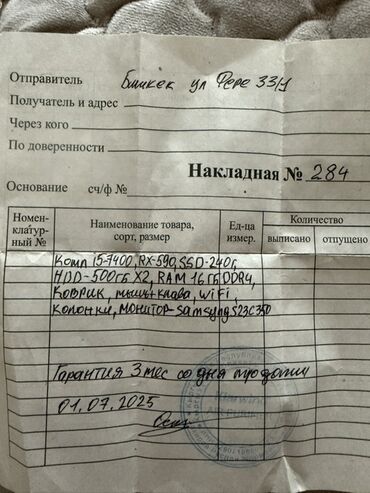 Отправитель Бишкек ул Фере 33/1
Получатель и адрес
Через кого
По доверенности
Накладная № 284
Основание сч/ф №
Номен-клатур-ный № Наименование товара, сорт, размер Ед-ца измер. Количество
выписано отпущено
Комп i5-7400, RX-590, SSD-240г,
HDD-500гб X2, RAM 16 гб DDR4,
Коврик, мыш+клава, WiFi,
колонки, монитор-Samsung S23C350
Гарантия 3 мес со дня продажи
01.07.2025